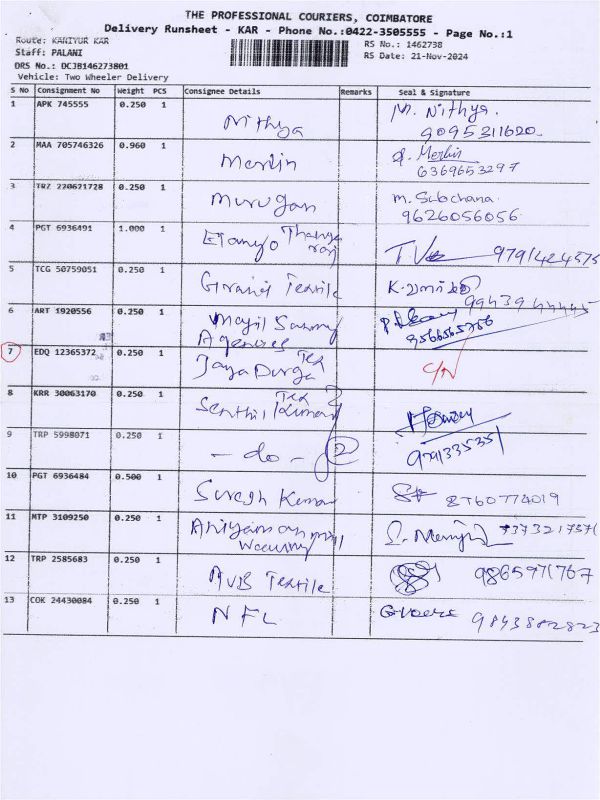 THE PROFESSIONAL COURIERS, COIMBATORE
Delivery Runsheet - KAR - Phone No.:0422-3505555 - Page No.:1
Route: KANIYUR KAR
RS No.: 1462738
Staff: PALANI
RS Date: 21-Nov-2024
DRS No.: DCJB146273801
Vehicle: Two Wheeler Delivery
S No Consignment No Weight PCS Consignee Details Remarks Seal & Signature
1 APK 745555 0.250 1 Nithya M. Nithya.
9095311620
2 MAA 705746326 0.960 1 Merlin Merlin
6369653297
3 TRZ 220621728 0.250 1 Murugan m. Subchana
9626056056
4 PGT 6936491 1.000 1 Thanga
raj 9791424575
5 TCG 50759051 0.250 1 Grand Textile
6 ART 1920556 0.250 1 Mayil Samy
Agencies 9566565756
7 EDQ 12365372 0.250 1 Jaya Durga Tex C/N
8 KRR 30063170 0.250 1 Senthil Kumar Tex
9 TRP 5998071 0.250 1 - do - 2
10 PGT 6936484 0.500 1 Suresh Kumar 8760774019
11 MTP 3109250 0.250 1
12 TRP 2585683 0.250 1 AVB Textile 9865971767
13 COK 24430084 0.250 1 NFL 9843882823